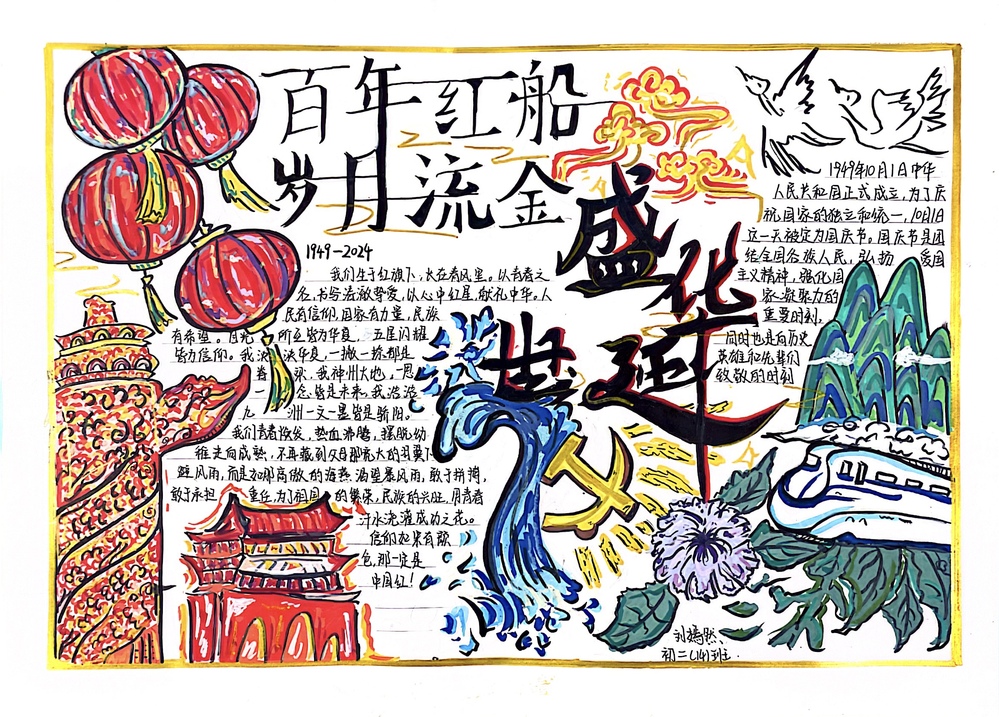 百年红船
岁月流金
盛世华诞
1949-2024
我们生于红旗下，长在春风里。以青春之
名，书写清澈挚爱，以心中红星，献礼中华。人
民有信仰，国家有力量，民族
有希望。目光所至皆为华夏，五星闪耀
皆为信仰。我泱泱华夏，一撇一捺都是
脊梁，我神州大地，一思
一念皆是未来，我浩浩
九洲一文一墨皆是骄阳。
我们青春焕发，热血沸腾，摆脱幼
稚走向成熟，不再躲到父母那宽大的羽翼下
避风雨，而是如那高傲的海燕渴望暴风雨，敢于拼搏，
敢于承担重任，为了祖国的繁荣，民族的兴旺，用青春
汗水浇灌成功之花。
信仰如果有颜
色，那一定是
中国红！
1949年10月1日中华
人民共和国正式成立，为了庆
祝国家的独立和统一，10月1日
这一天被定为国庆节。国庆节是团
结全国各族人民，弘扬爱国
主义精神，强化国
家凝聚力的
重要时刻，
同时也是向历史
英雄和先辈们
致敬的时刻
初二（14）班